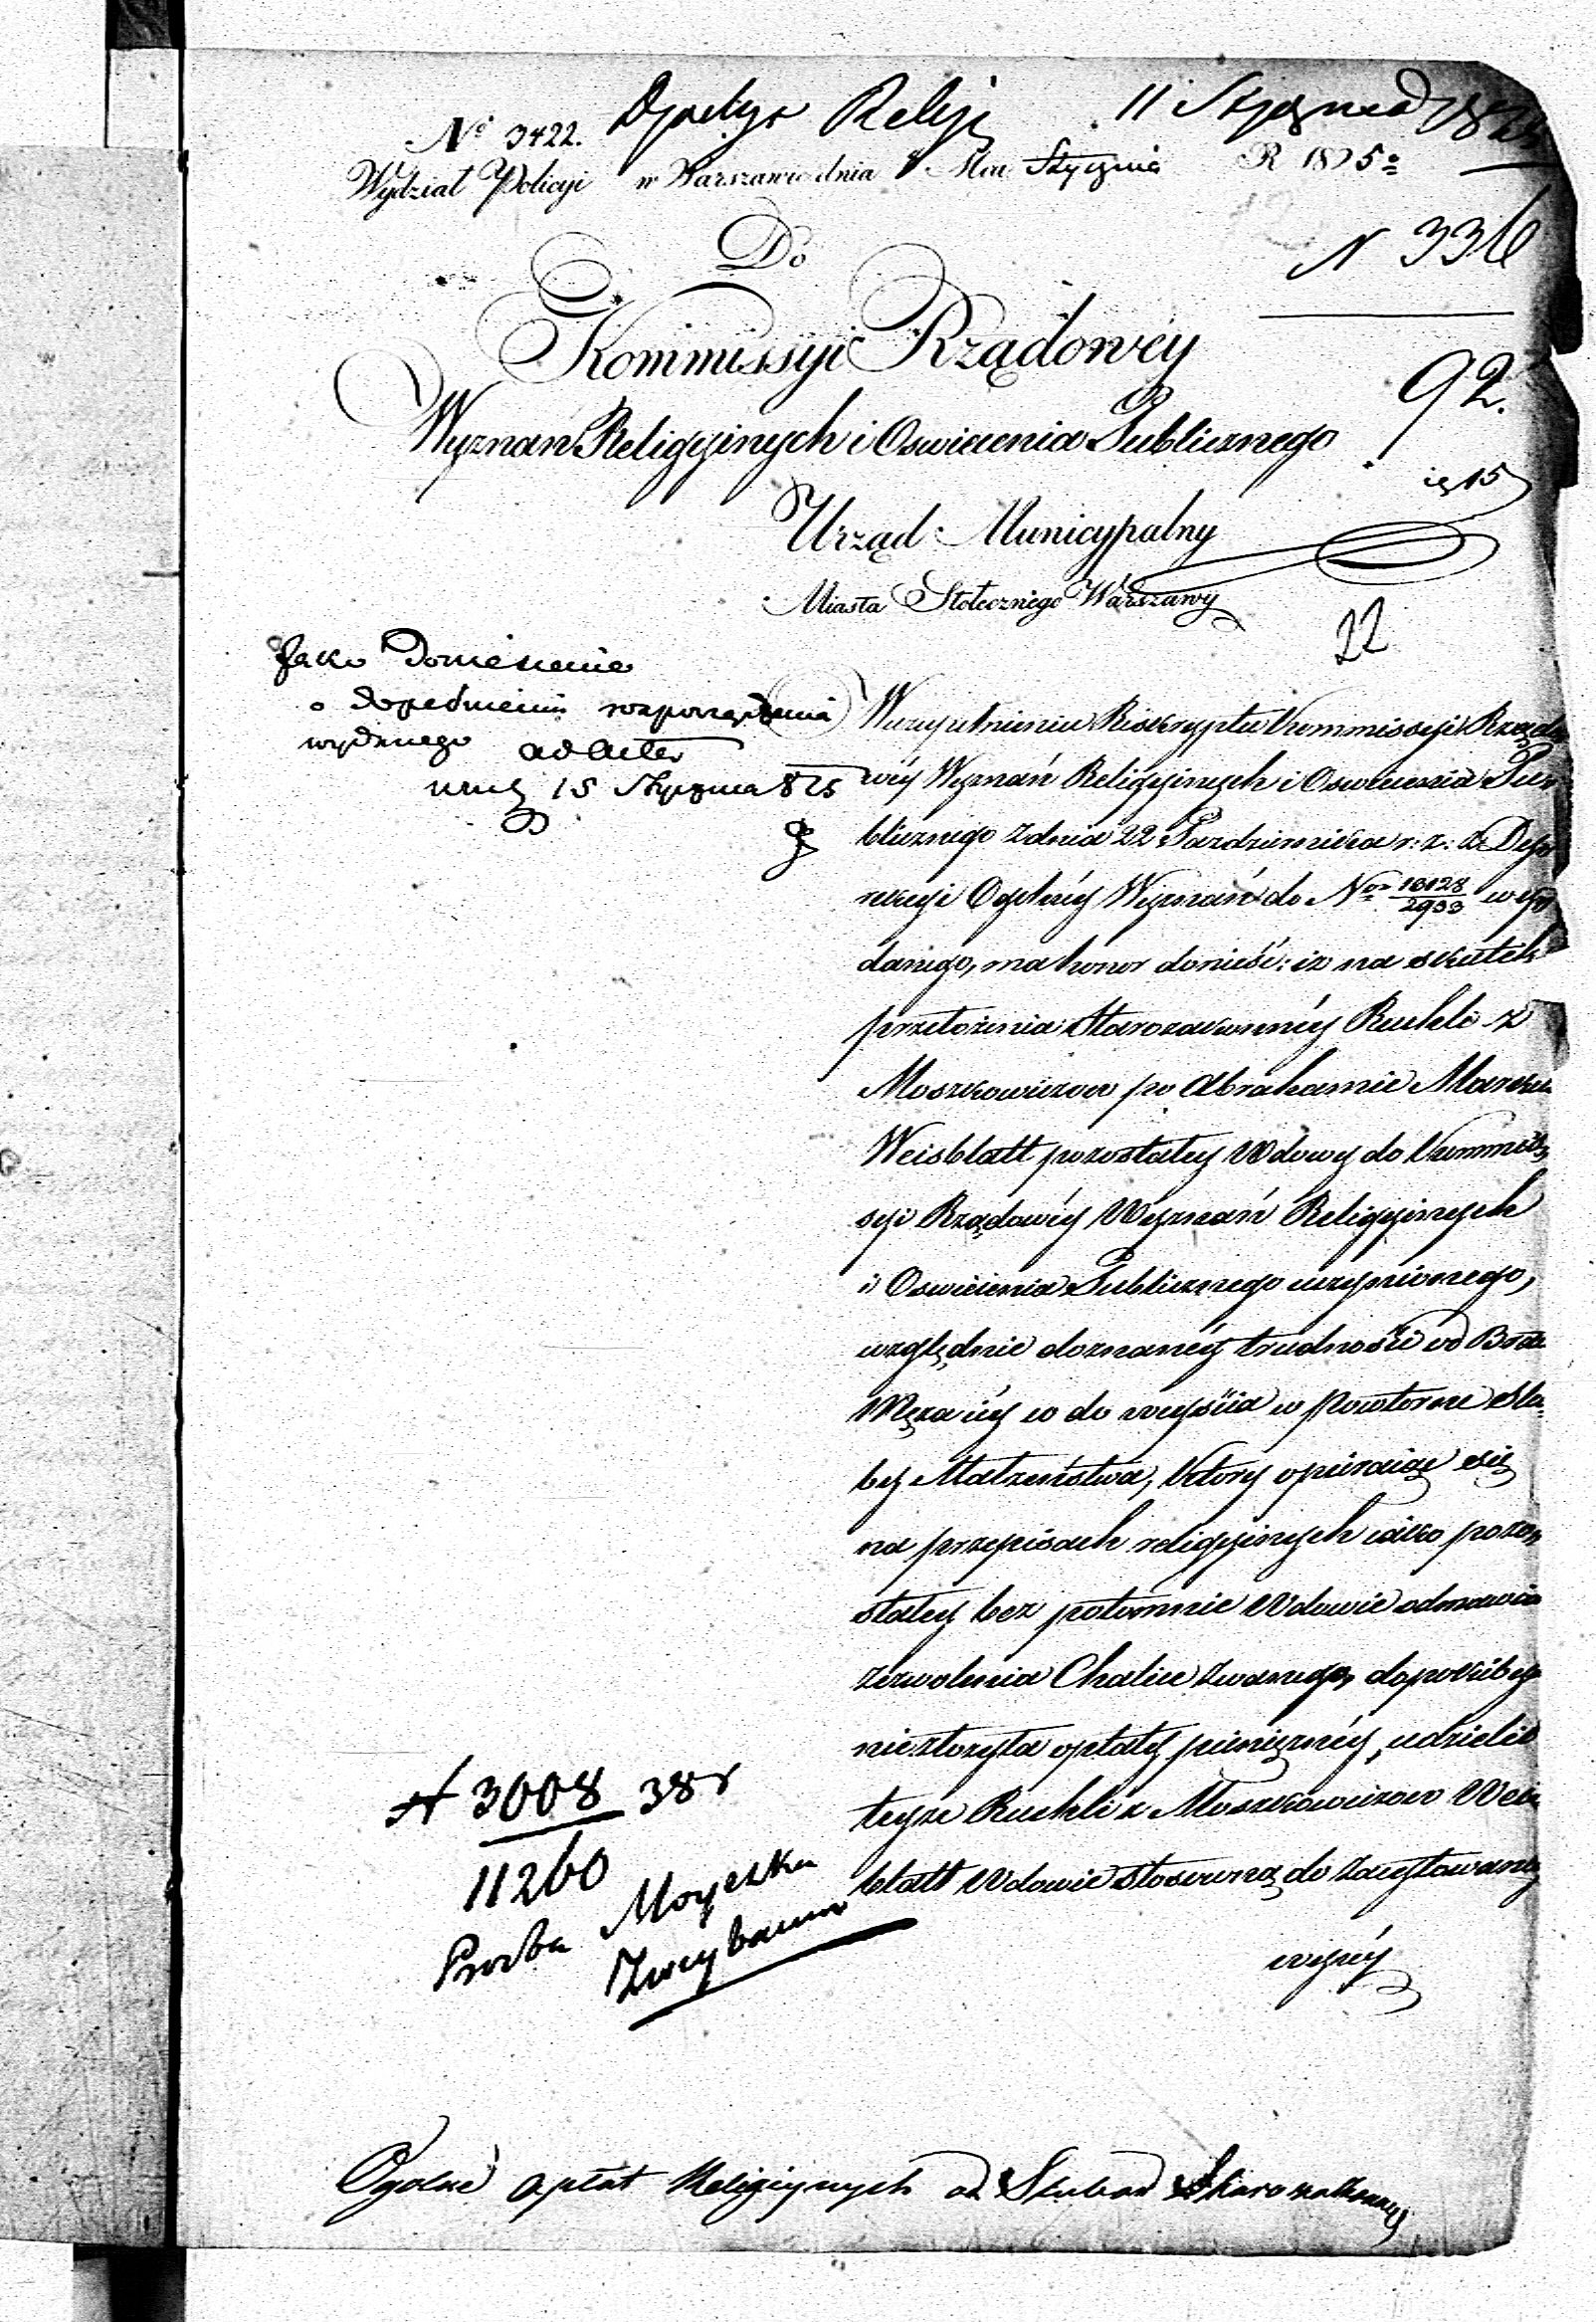 Dyrekcya Religij 11 Stycznia 1825
Nº 3422.
Wydział Policyi w Warszawie dnia 8 Mca Stycznia R 1825º
N 336
Do
Kommissyi Rządowéy
Wyznań Religyinych i Oswiecenia Publicznego
92.
Urząd Municypalny
Miasta Stołecznego Warszawy
22
Jako Doniesienie
o dopełnieniu rozporządzenia
wydanego ad acta
15 Stycznia 825
W uzupełnieniu Reskryptu Kommissyi Rządo
wéy Wyznań Religyinych i Oswiecenia Pu
blicznego z dnia 22 Pazdziernika r: z: z Dy
rekcyi Ogólnéy Wyznań do Nro 16128/2933 wy
danego, ma honor donieść: iz na skutek
przełożenia Starozakonnéy Ruchli z
Moszkowiczow po Abrahamie Marku
Weisblatt pozostałey Wdowy do Kommis
syi Rządowéy Wyznań Religyinych
i Oswiecenia Publicznego uczynionego,
względnie doznanéy trudności od Brata
Męża iéy co do weyścia w powtorne slu
by Małzeństwa, ktory opieraiąc się
na przepisach religyinych iako pozo
stałey bez potomnie Wdowie odmawia
zezwolenia Chalice zwanego, dopokiby
nie złozyła opłaty pienięznéy, udzielił
teyze Ruchli z Moszkowiczow Weis
blatt Wdowie stosowną do zacytowanéy
wyżéy
N 3008 38r
11260
Prozba Moyszka
Ogolne opłat Religiynych od Slubow Starozakonnych